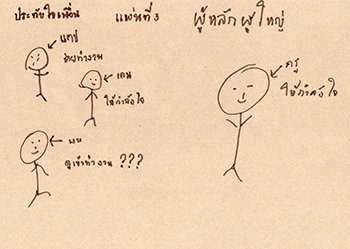 ประทับใจเพื่อน
แผ่นที่ 3
ผู้หลักผู้ใหญ่
แคป
ช่วยทำงาน
เคน
ให้กำลังใจ
ดูเข้าทำงาน ???
ครู
ให้กำลังใจ